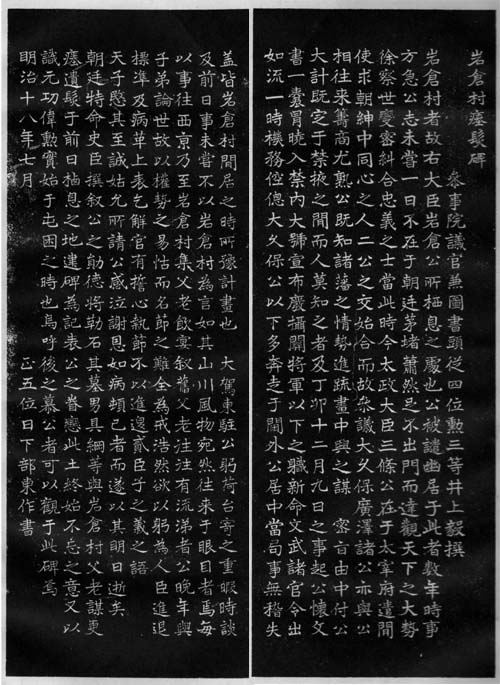 岩倉村瘞髮碑
參事院議官兼圖書頭從四位勳三等井上毅撰
岩倉村者故右大臣岩倉公所栖息之處也公被譴幽居于此者數年時事
方急公志未嘗一日不在于朝廷茅堵蕭然足不出門而達觀天下之大勢
徐察世變審糾合忠義之士當此時今太政大臣三條公在于太宰府遣間
使求朝紳中同心之人二公之交始合而故參議大久保廣澤諸公亦與公
相往來籌商尤熟公既知諸藩之情勢進疏畫中興之謀 密旨由中付公
大計既定于禁掖之間而人莫知之者及丁卯十二月九日之事起公懷文
書一囊冒曉入禁內大號宣布廢攝關將軍以下之職新命文武諸官令出
如流一時機務倥傯大久保公以下多奔走于閫外公居中當局事無失
蓋皆岩倉村閒居之時所豫計畫也 大駕東駐公躬荷台寄之重暇時談
及前日事未嘗不以岩倉村為言如其山川風物宛然往來于眼目者焉每
以事往西京乃至岩倉村集父老飲宴叙舊父老往往有流涕者公晚年與
子弟論世故以權勢之易怙而名節之難全為戒浩然欲以躬為人臣進退
標準及病革上表乞解官有擔心執節不以進退貳臣子之義之語
天子愍其至誠姑允所請公感泣謝恩如病頓已者而遂以其明日逝矣
朝廷特命史臣撰叙公之勛德將勒石其墓男具綱等與岩倉村父老謀更
瘞遺髮于前日栖息之地建碑為記表公之眷戀此土終始不忘之意又以
識元功偉勳實始于屯困之時也烏呼後之慕公者可以觀于此碑焉
明治十八年七月 正五位日下部東作書